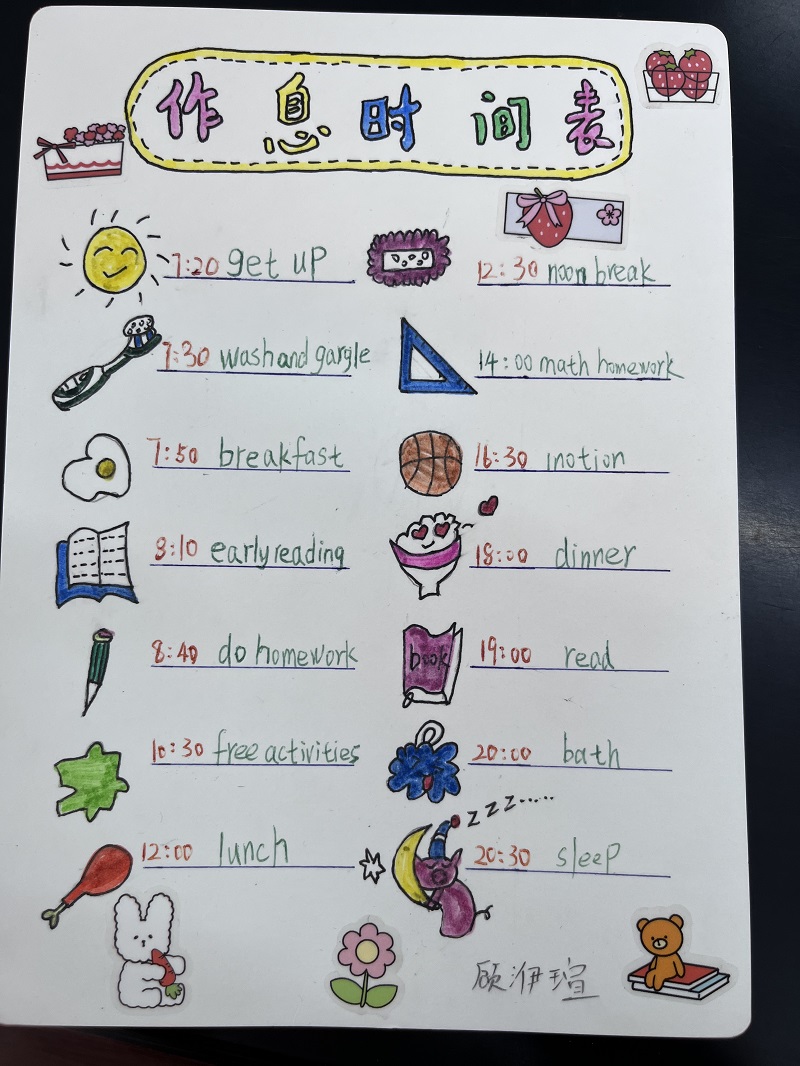 作息时间表
7:20 get up
7:30 wash and gargle
7:50 breakfast
8:10 early reading
8:40 do homework
10:30 free activities
12:00 lunch
12:30 noon break
14:00 math homework
16:30 motion
18:00 dinner
book
19:00 read
20:00 bath
zzz......
20:30 sleep
顾洢瑄